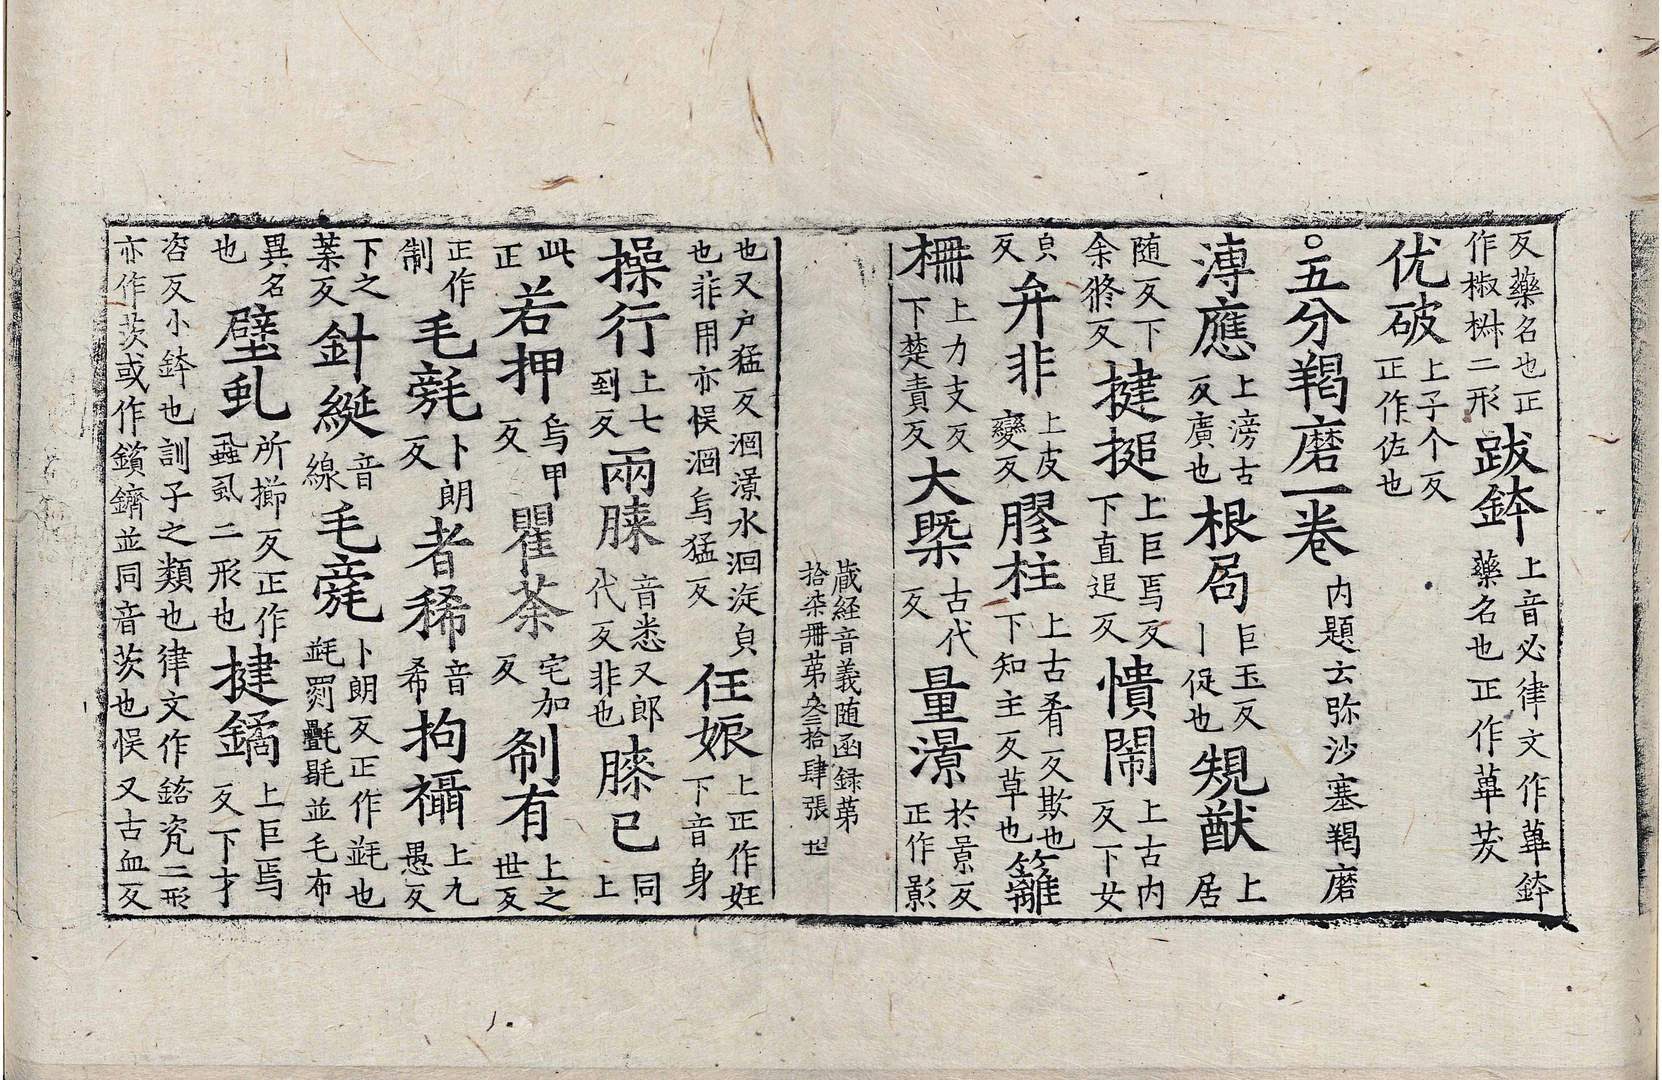 反藥名也正作椒樹二形跋鉢上音必律文作蓽鉢藥名也正作蓽茇
优破上子个反正作佐也
○五分羯磨一卷内題云弥沙塞羯磨
溥應上滂古反廣也根局巨玉反丨促也䂓猷上居
随反下余修反揵搥上巨焉反下直追反憒閙上古内反下女
皃反弁非上皮變反膠柱上古肴反欺也下知主反草也籬
柵上力支反下楚責反大槩古代反量澋於景反正作影
藏經音義随函録第拾柒冊第叁拾肆張世
也又户猛反洄澋水洄淀皃也非用亦悮洄烏猛反任娠上正作妊下音身
操行上七到反兩膝音悉又郎代反非也膝已同上
此正若押烏甲反瞿荼宅加反制有上之世反
正作制毛㲈卜朗反者稀音希拘禠上九愚反
下之葉反針綖音線毛㲈卜朗反正作㲝也㲝罽㲲毾並毛布
異名也壁虱所擳反正作蝨虱二形也揵鐍上巨焉反下才
咨反小鉢也訓子之類也律文作鎝瓷二形亦作茨或作鑧鑇並同音茨也悮又古血反